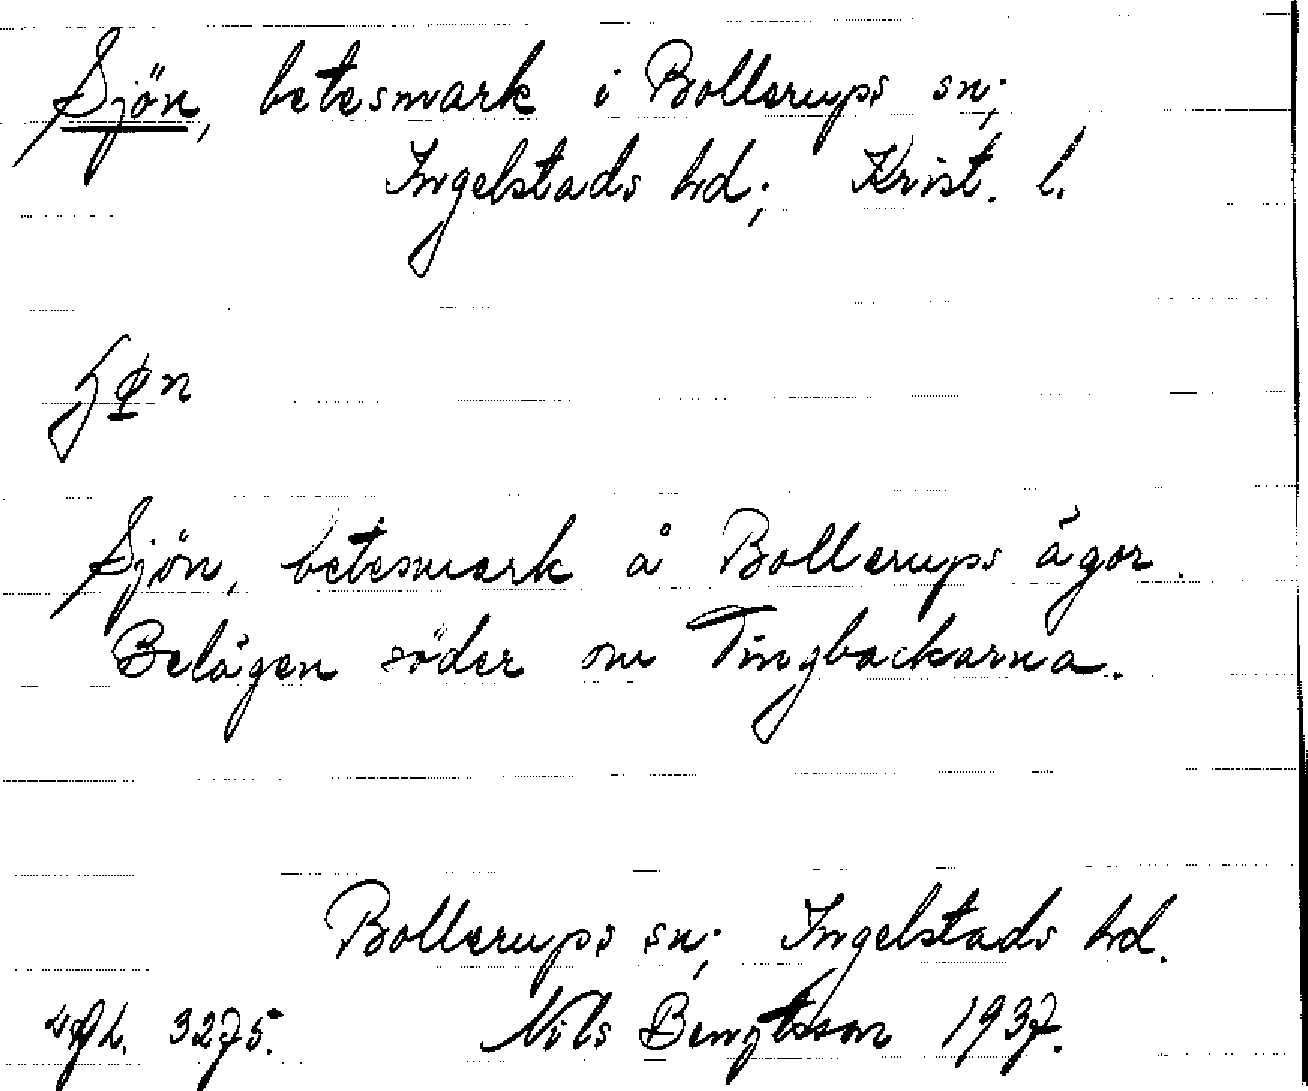 Sjön, betesmark i Bollerups sn;
Ingelstads hd; Krist. l.
Sjön, betesmark å Bollerups ägor.
Belägen söder om Tingbackarna.
Bollerups sn; Ingelstads hd.
3275. Nils Bengtsson 1937.